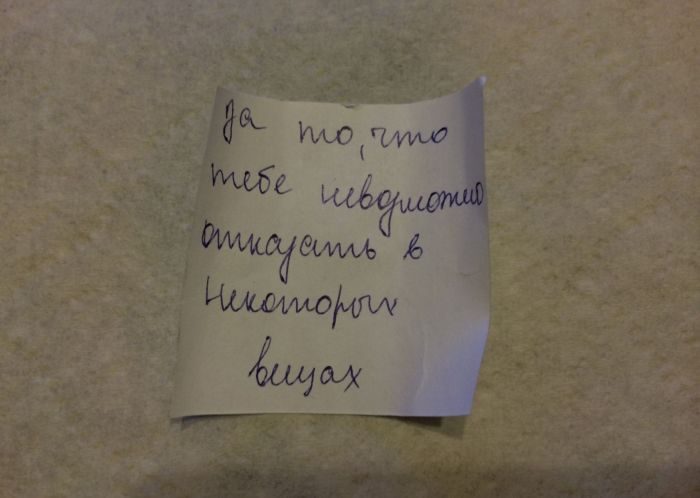 За то, что
тебе невозможно
отказать в
некоторых
вещах